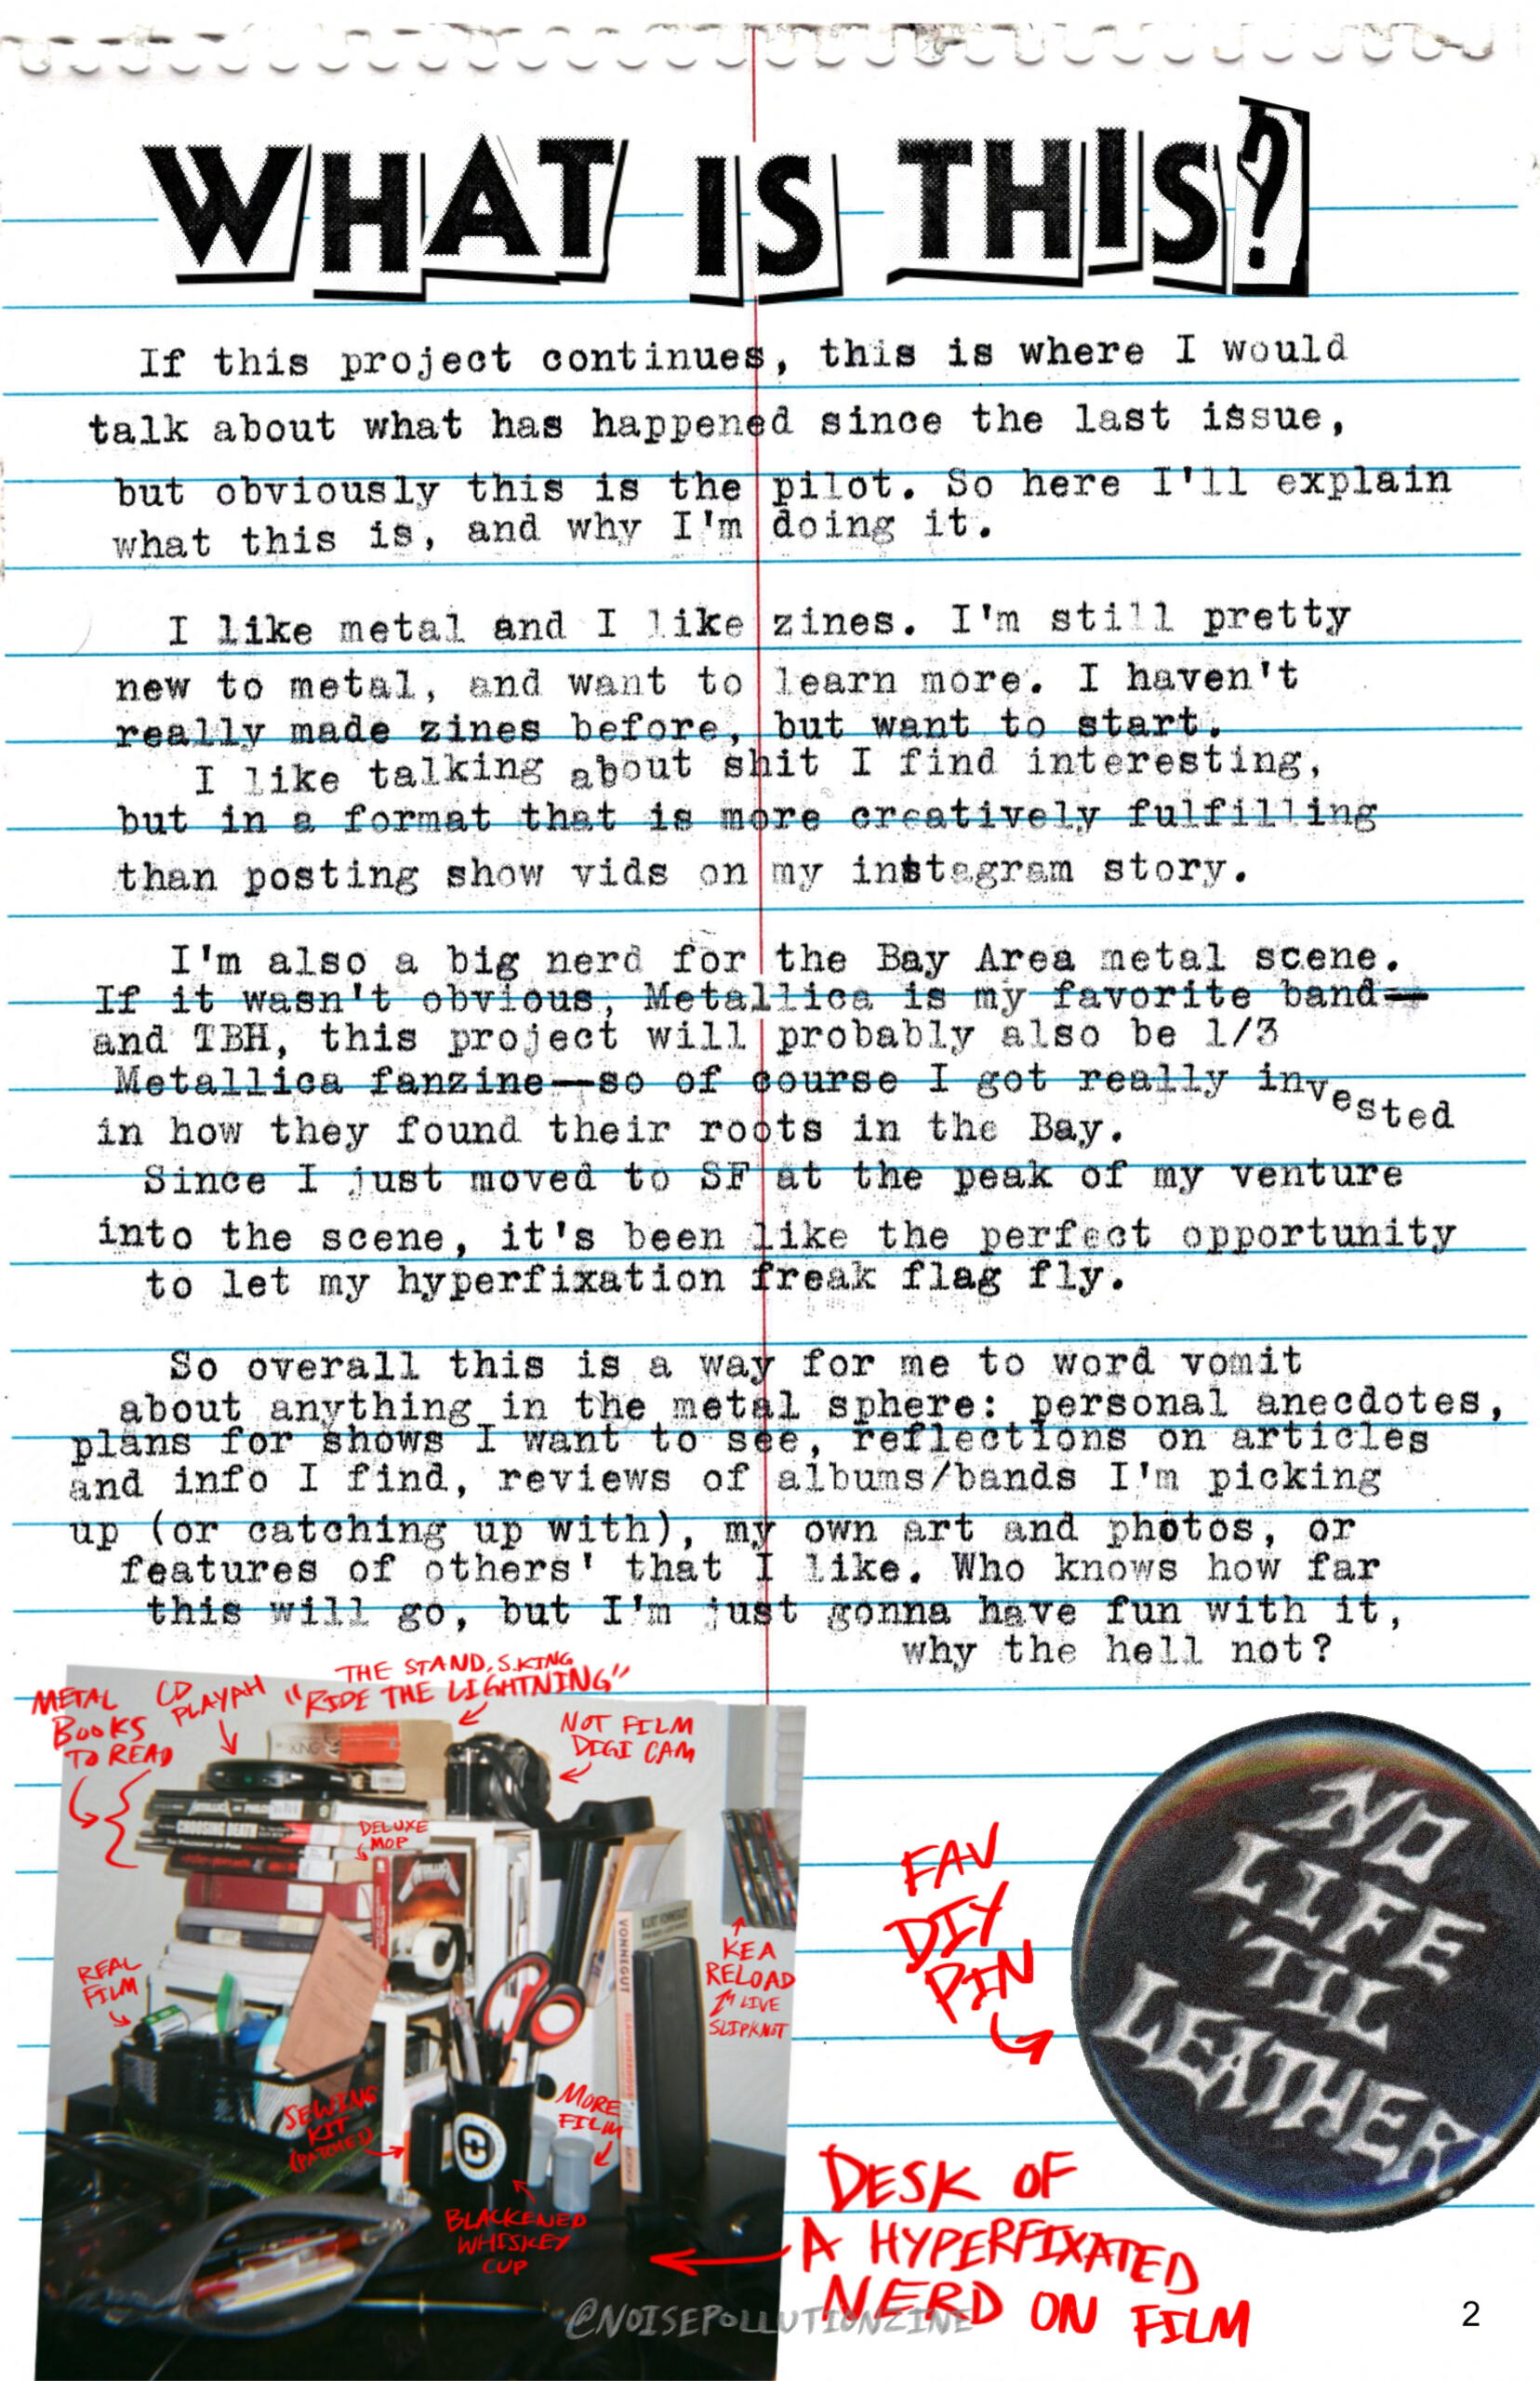 WHAT IS THIS?
If this project continues, this is where I would
talk about what has happened since the last issue,
but obviously this is the pilot. So here I'll explain
what this is, and why I'm doing it.
I like metal and I like zines. I'm still pretty
new to metal, and want to learn more. I haven't
really made zines before, but want to start.
I like talking about shit I find interesting,
but in a format that is more creatively fulfilling
than posting show vids on my instagram story.
I'm also a big nerd for the Bay Area metal scene.
If it wasn't obvious, Metallica is my favorite band—
and TBH, this project will probably also be 1/3
Metallica fanzine—so of course I got really invested
in how they found their roots in the Bay.
Since I just moved to SF at the peak of my venture
into the scene, it's been like the perfect opportunity
to let my hyperfixation freak flag fly.
So overall this is a way for me to word vomit
about anything in the metal sphere: personal anecdotes,
plans for shows I want to see, reflections on articles
and info I find, reviews of albums/bands I'm picking
up (or catching up with), my own art and photos, or
features of others' that I like. Who knows how far
this will go, but I'm just gonna have fun with it,
why the hell not?
METAL
BOOKS
TO READ
CD
PLAYAH
THE STAND, S.KING
"RIDE THE LIGHTNING"
NOT FILM
DIGI CAM
DELUXE
MOP
CHOOSING DEATH
METALLICA
KURT VONNEGUT
VONNEGUT
REAL
FILM
KEA
RELOAD
LIVE
SLIPKNOT
SEWING
KIT
(PATCHES)
MORE
FILM
BLACKENED
WHISKEY
CUP
FAV
DIY
PIN
NO
LIFE
'TIL
LEATHER
DESK OF
A HYPERFIXATED
NERD ON FILM
@NOISEPOLLUTIONZINE
2